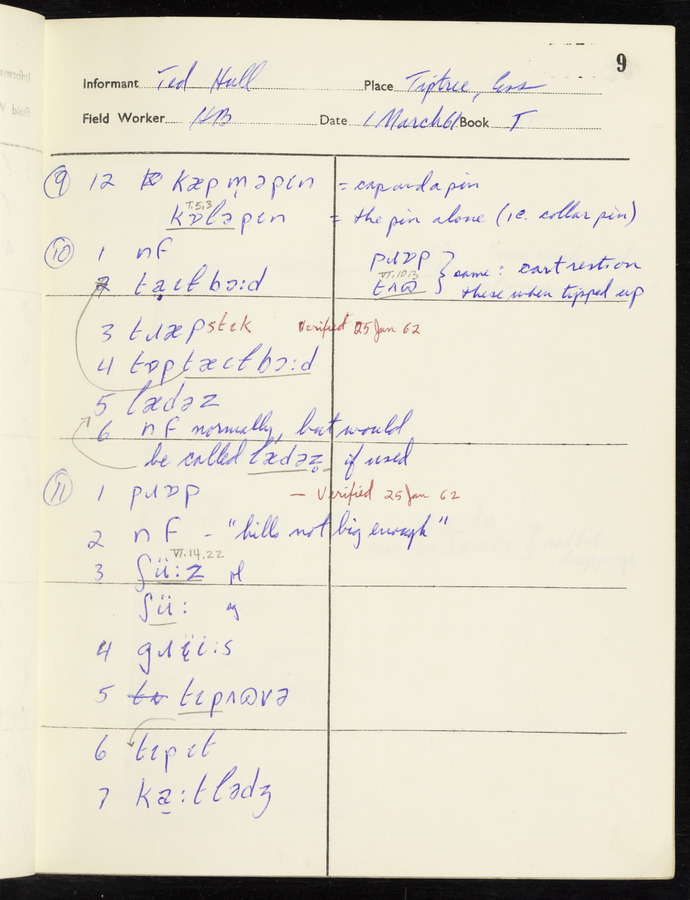 9
Informant Ted Hull Place Tiptree, Essx
Field Worker HB Date 1 March 61 Book T
⑨ 12 kæpm̩əpɪn = cap and a pin
T.5,3
kɒləpɪn = the pin alone (i.e. collar pin)
⑩ 1 nf
tæɪlbɔ:d
pɹɒp } same : cart rests on
VI.10.3
these when tipped up
3 tɹæpstɪk Verified 25 Jan 62
4 tɒptæɪlbɔ:d
5 lædəz
6 nf normally, but would
be called lædəz̥ if used
⑪ 1 pɹɒp – Verified 25 Jan 62
2 nf – "hills not big enough"
VI.14.22
3 ʃü:z pl
ʃü: sg
4 gɹi:s
5 tɪpʌʊvə
6 tɪpɪt
7 ka̤:tlɒdʒ